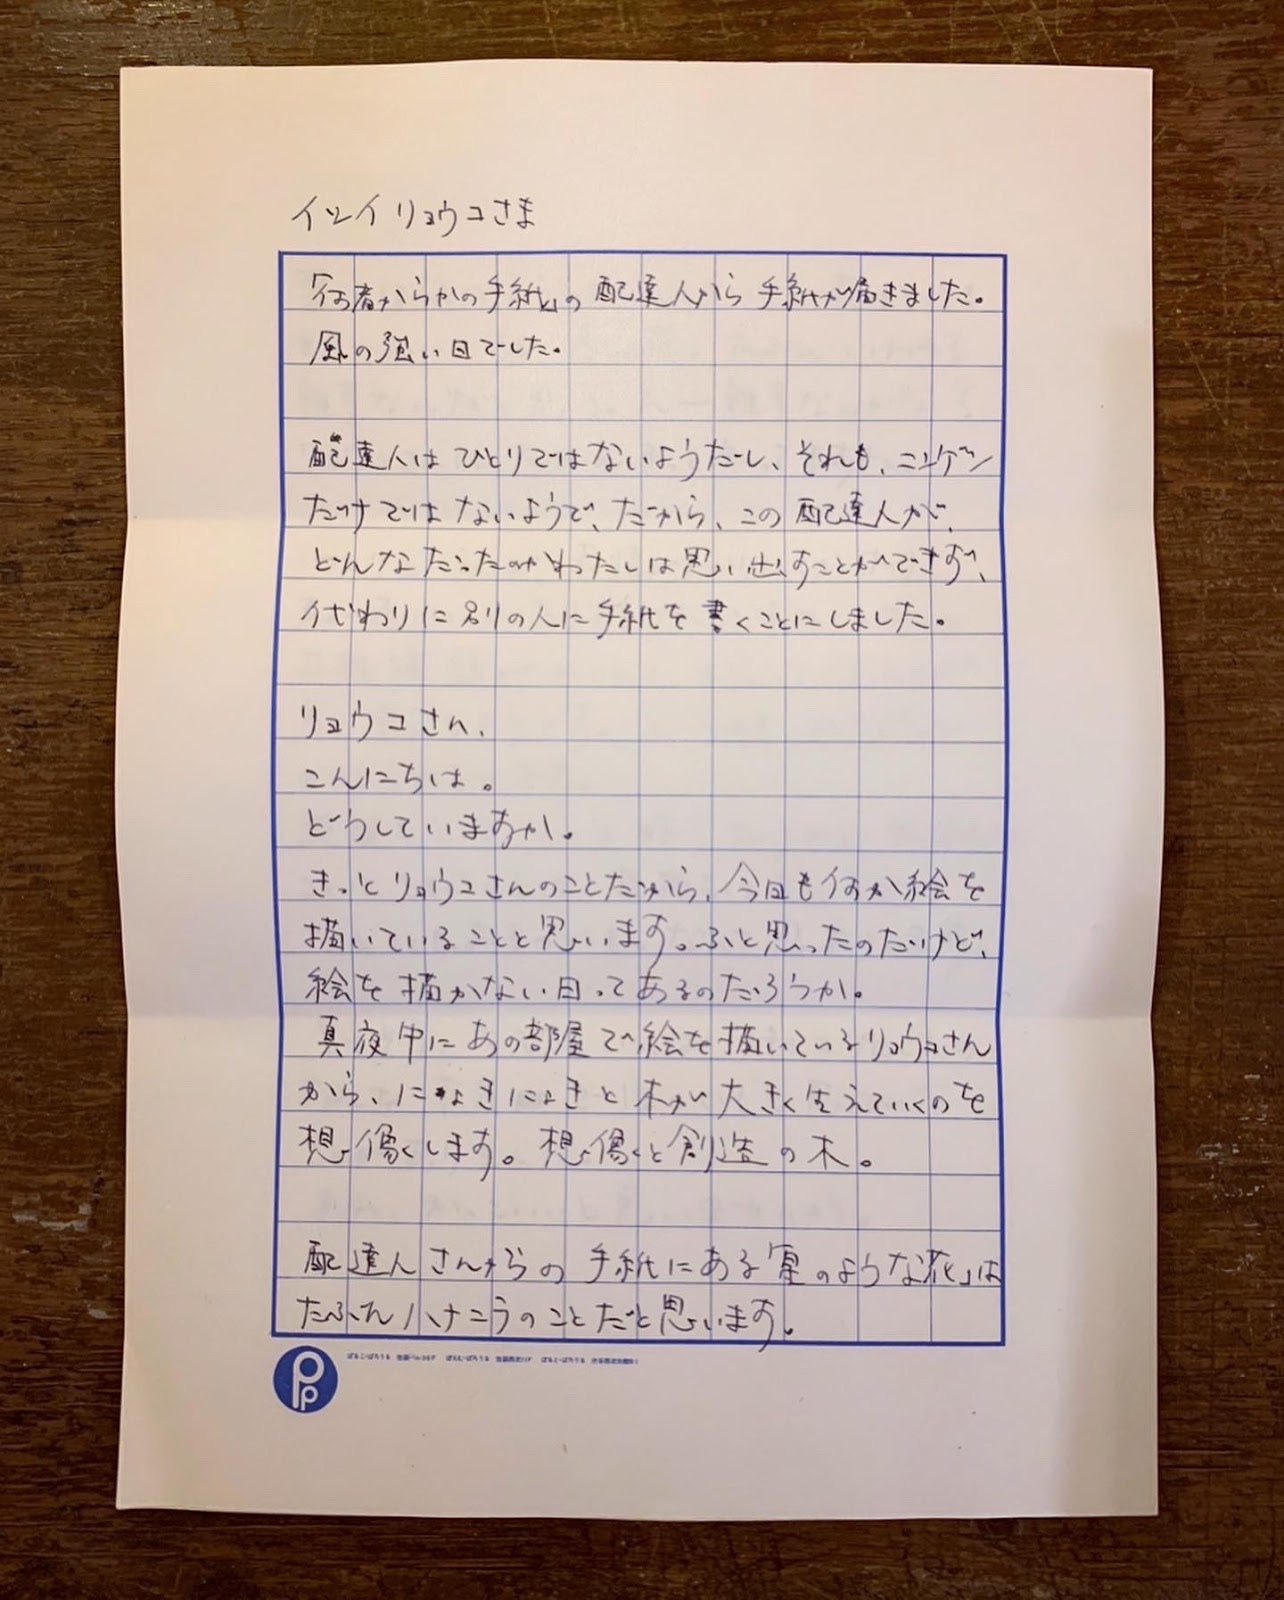 イシイリョウコさま
「何者からかの手紙」の配達人から手紙が届きました。
風の強い日でした。
配達人はひとりではないようだし、それも、ニンゲン
だけではないようで、だから、この配達人が、
どんなだったのかわたしは思い出すことができず、
代わりに別の人に手紙を書くことにしました。
リョウコさん、
こんにちは。
どうしていますか。
きっとリョウコさんのことだから、今日も何か絵を
描いていることと思います。ふと思ったのだけど、
絵を描かない日ってあるのだろうか。
真夜中にあの部屋で絵を描いているリョウコさん
から、にょきにょきと木が大きく生えていくのを
想像します。想像と創造の木。
配達人さんからの手紙にある「星のような花」は
たぶんハナニラのことだと思います。
Pp